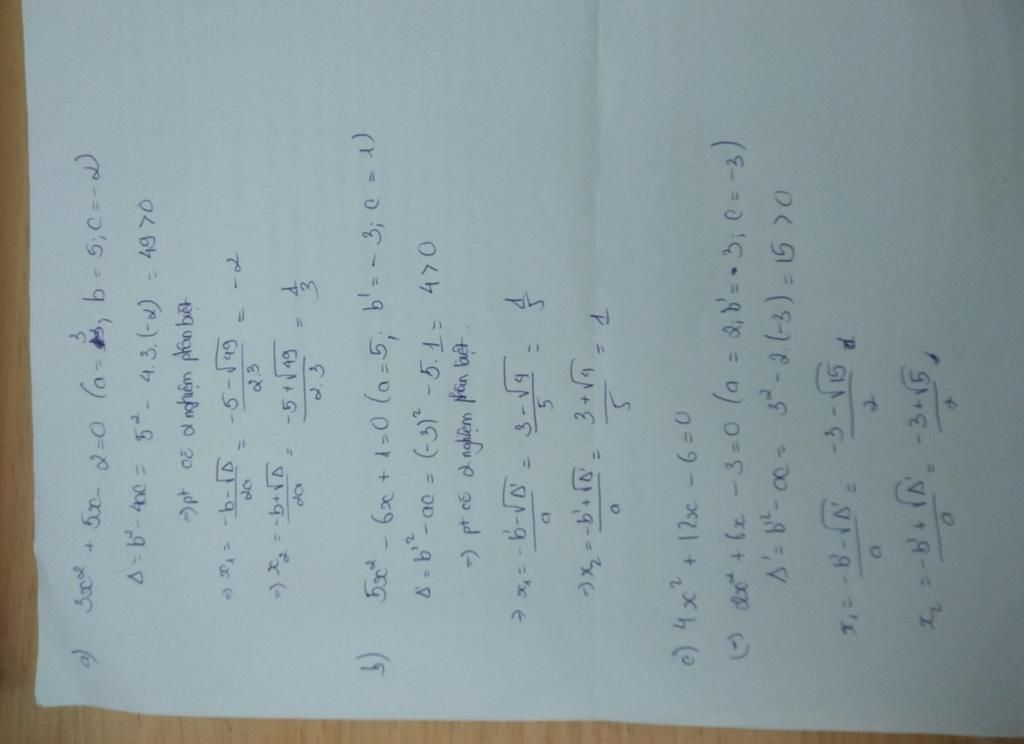 a) 3x² + 5x - 2 = 0 (a = 3; b = 5; c = -2)
Δ = b² - 4ac = 5² - 4.3.(-2) = 49 > 0
=> pt có 2 nghiệm phân biệt
=> x₁ = (-b - √Δ)/2a = (-5 - √49)/2.3 = -2
=> x₂ = (-b + √Δ)/2a = (-5 + √49)/2.3 = 1/3
b) 5x² - 6x + 1 = 0 (a = 5; b' = -3; c = 1)
Δ' = b'² - ac = (-3)² - 5.1 = 4 > 0
=> pt có 2 nghiệm phân biệt.
=> x₁ = (-b' - √Δ')/a = (3 - √4)/5 = 1/5
=> x₂ = (-b' + √Δ')/a = (3 + √4)/5 = 1
c) 4x² + 12x - 6 = 0
(=) 2x² + 6x - 3 = 0 (a = 2; b' = 3; c = -3)
Δ' = b'² - ac = 3² - 2.(-3) = 15 > 0
x₁ = (-b' - √Δ')/a = (-3 - √15)/2
x₂ = (-b' + √Δ')/a = (-3 + √15)/2